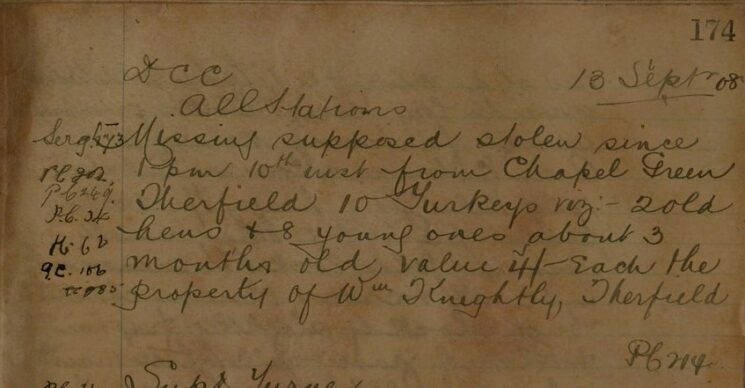 174
DCC 13 Septr 08
All Stations
Sergt 273 Missing supposed stolen since
PC 202. 1 pm 10th inst from Chapel Green
PC 269. Therfield 10 Turkeys viz:- 2 old
P.C. 24 hens & 8 young ones about 3
H. 62 months old, value 4/- Each the
property of Wm Knightly, Therfield
PC 214
Supt Turner